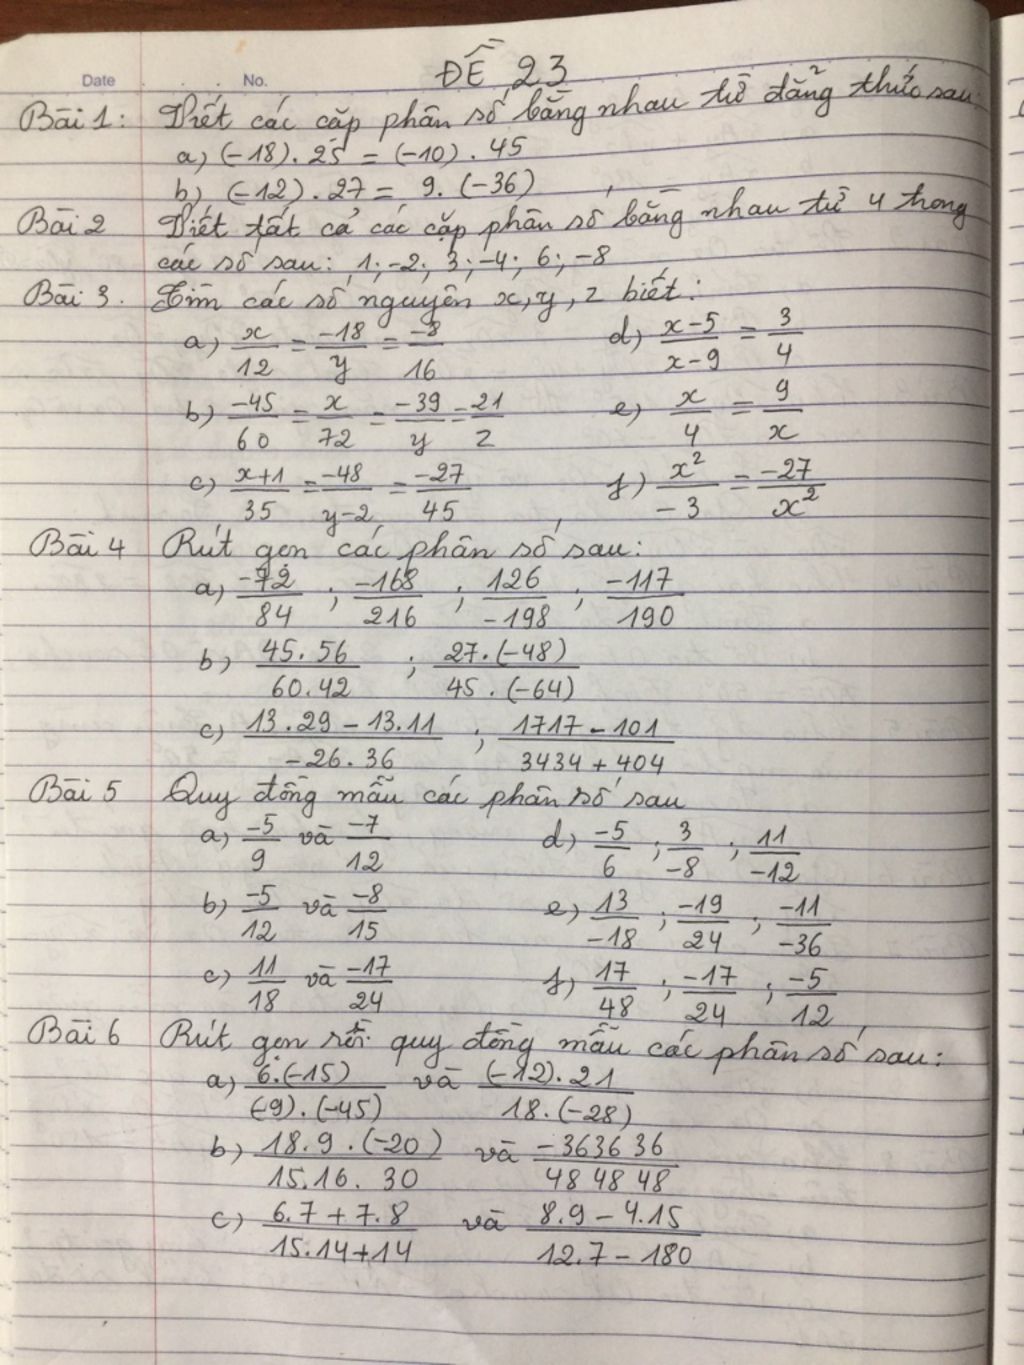 Date No. ĐỀ 23
Bài 1: Viết các cặp phân số bằng nhau từ đẳng thức sau:
a) (-18). 25 = (-10). 45
b) (-12). 27 = 9. (-36)
Bài 2 Viết tất cả các cặp phân số bằng nhau từ 4 trong
các số sau: 1; -2; 3; -4; 6; -8
Bài 3. Tìm các số nguyên x, y, z biết:
a) x/12 = -18/y = -8/16 d) x-5/x-9 = 3/4
b) -45/60 = x/72 = -39/y = 21/z e) x/4 = 9/x
c) x+1/35 = -48/y-2 = -27/45 f) x²/-3 = -27/x²
Bài 4 Rút gọn các phân số sau:
a) -72/84 ; -168/216 ; 126/-198 ; -117/190
b) 45.56/60.42 ; 27.(-48)/45.(-64)
c) 13.29 - 13.11/-26.36 ; 1717 - 101/3434 + 404
Bài 5 Quy đồng mẫu các phân số sau
a) -5/9 và -7/12 d) -5/6 ; 3/-8 ; 11/-12
b) -5/12 và -8/15 e) 13/-18 ; -19/24 ; -11/-36
c) 11/18 và -17/24 f) 17/48 ; -17/24 ; -5/12
Bài 6 Rút gọn rồi quy đồng mẫu các phân số sau:
a) 6.(-15)/(-9).(-45) và (-12).21/18.(-28)
b) 18.9.(-20)/15.16.30 và -363636/484848
c) 6.7 + 7.8/15.14 + 14 và 8.9 - 4.15/12.7 - 180